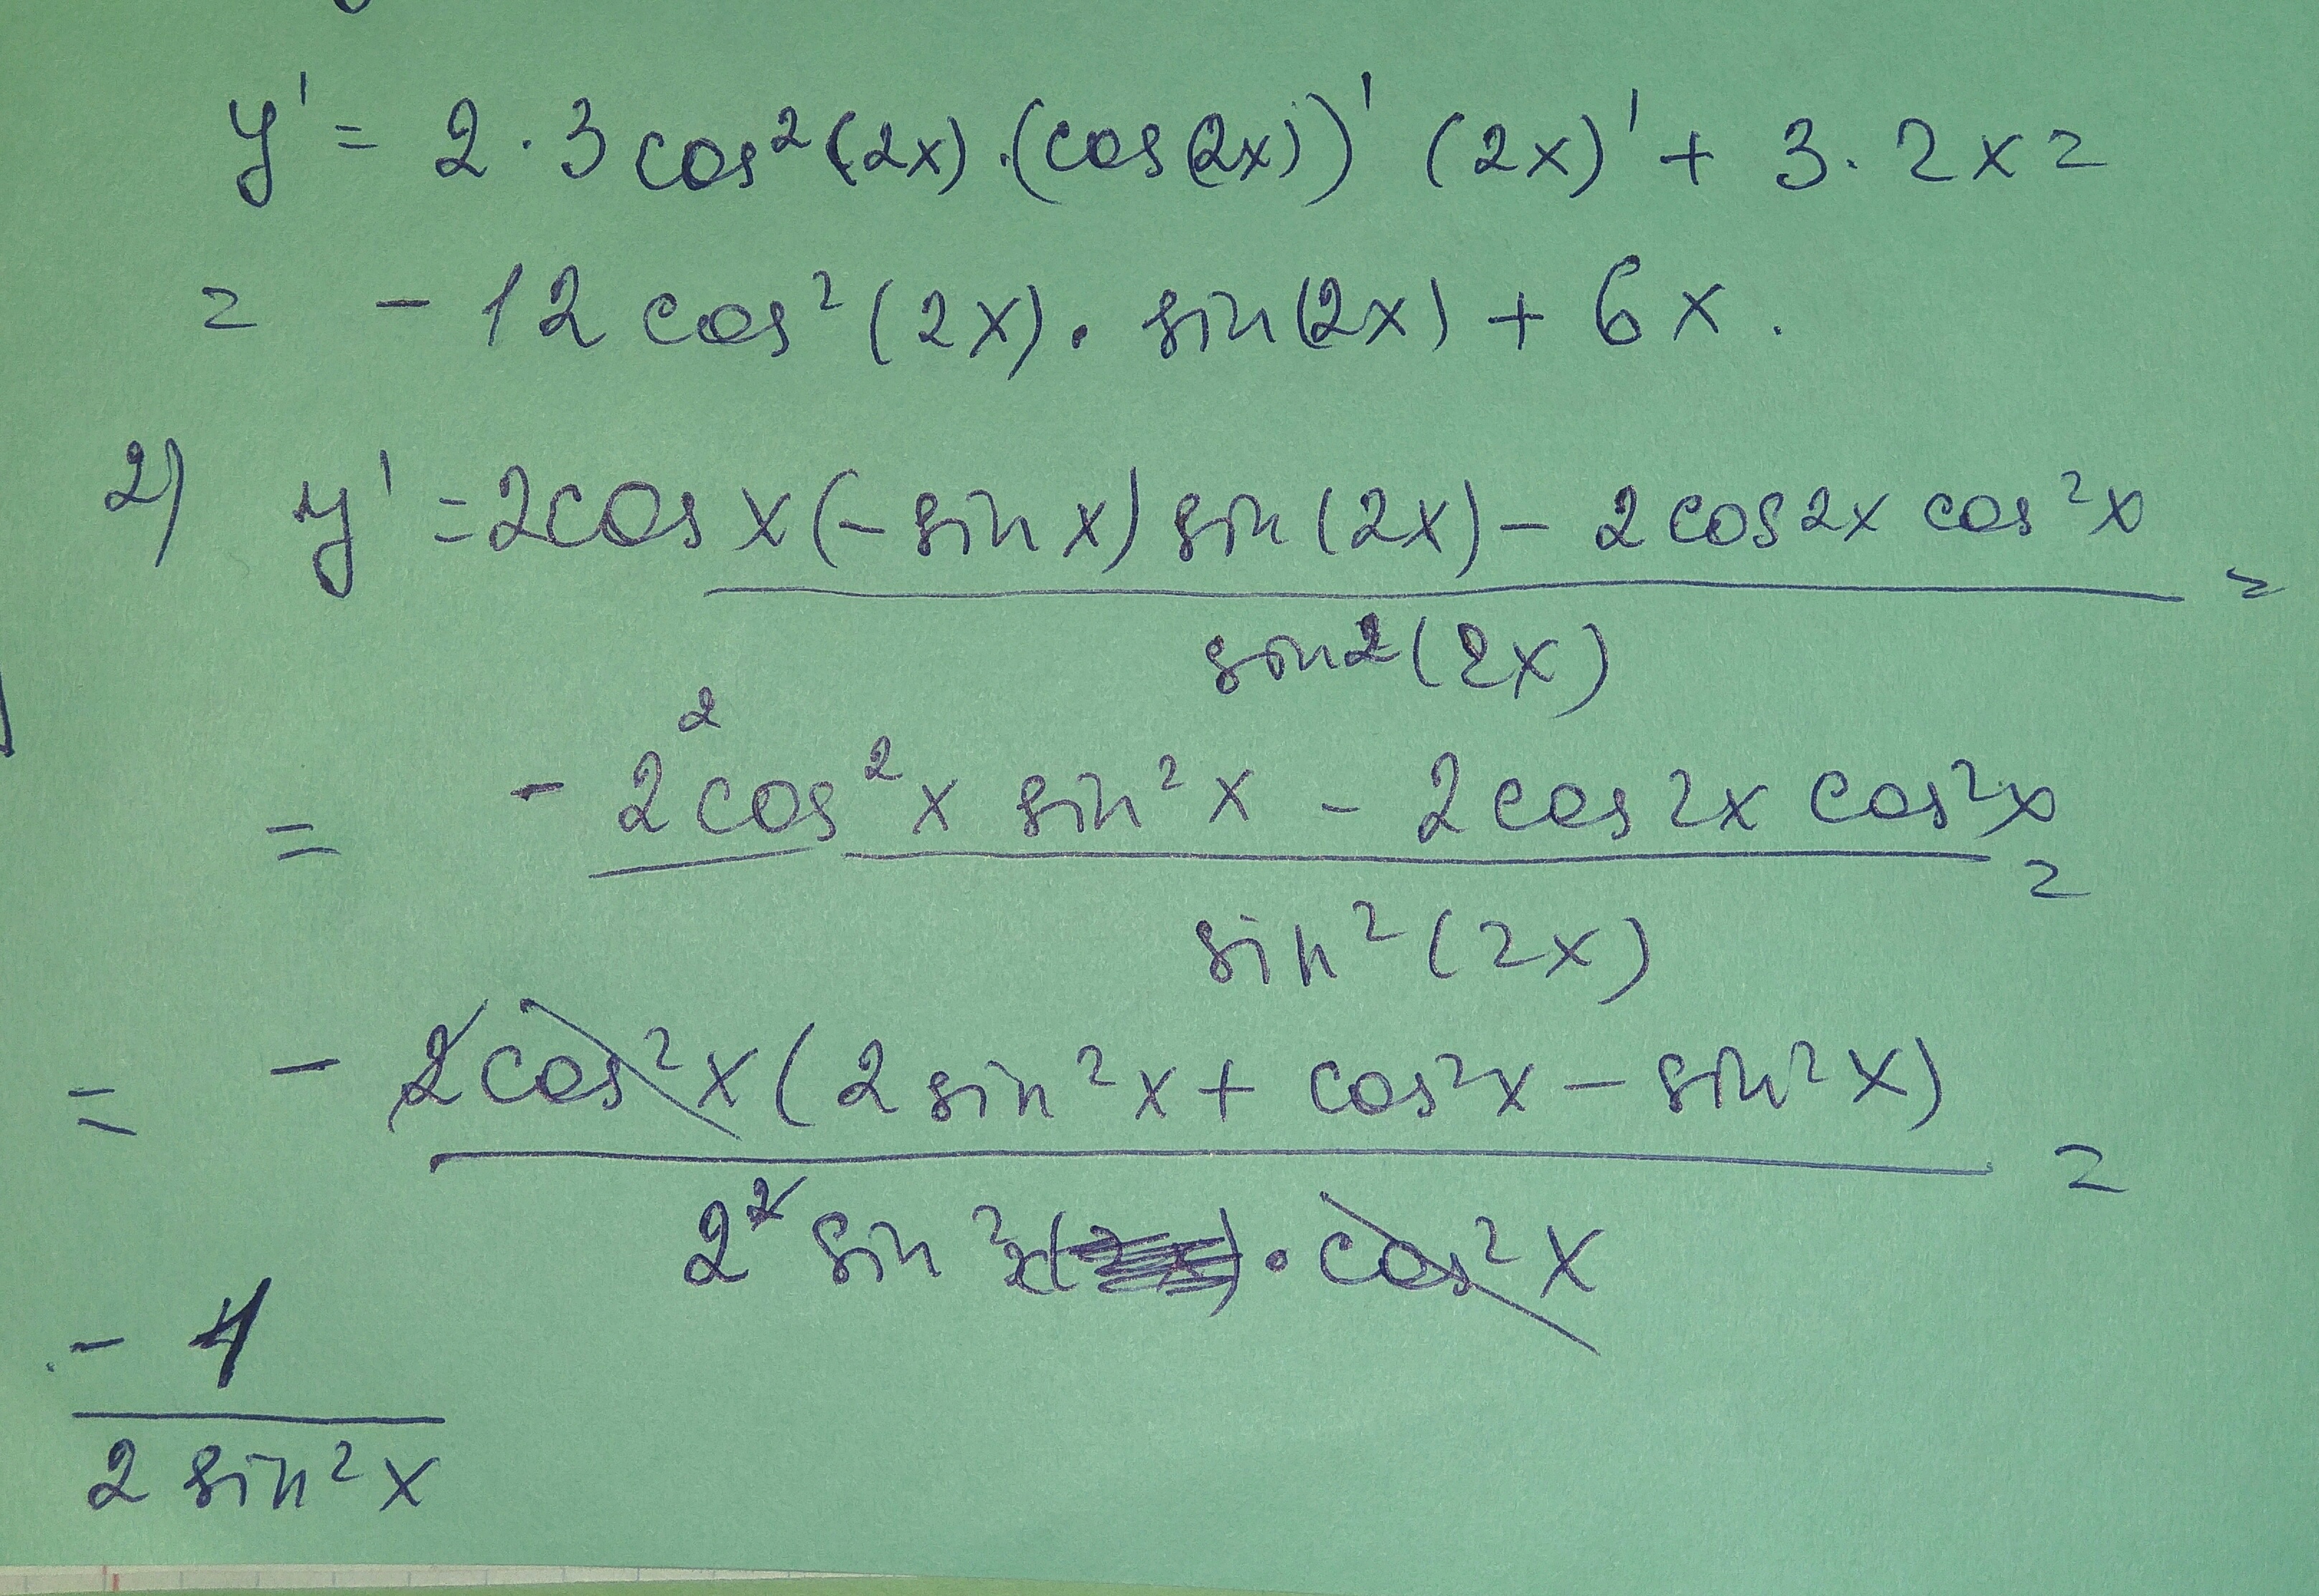 y' = 2·3cos²(2x)·(cos(2x))' (2x)' + 3·2x =
= -12cos²(2x)·sin(2x) + 6x.
2) y' = 2cosx(-sinx)sin(2x) - 2cos2x cos²x =
sin2(2x)
= -2²cos²x sin²x - 2cos2x cos²x =
sin²(2x)
= -2cos²x(2sin²x + cos²x - sin²x) =
2² sin²x·cos²x
-1
2 sin²x